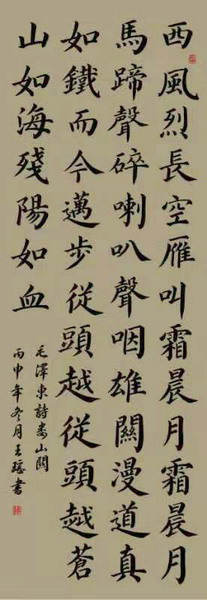 西風烈長空雁叫霜晨月霜晨月
馬蹄聲碎喇叭聲咽雄關漫道真
如鐵而今邁步從頭越從頭越蒼
山如海殘陽如血
毛澤東詩婁山關
丙申年冬月王瑤書